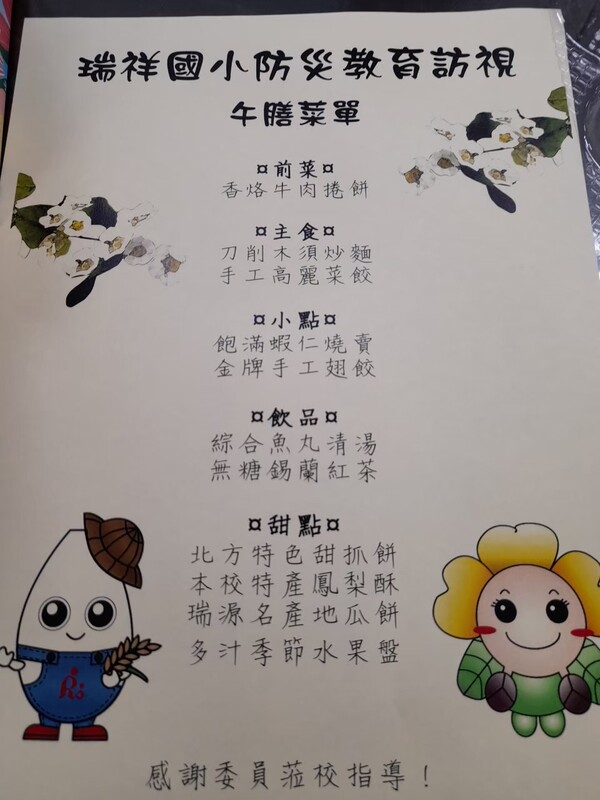 瑞祥國小防災教育訪視
午膳菜單
¤前菜¤
香烙牛肉捲餅
¤主食¤
刀削木須炒麵
手工高麗菜餃
¤小點¤
飽滿蝦仁燒賣
金牌手工翅餃
¤飲品¤
綜合魚丸清湯
無糖錫蘭紅茶
¤甜點¤
北方特色甜抓餅
本校特產鳳梨酥
瑞源名產地瓜餅
多汁季節水果盤
感謝委員蒞校指導！